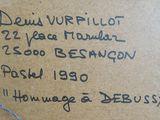 Denis VURPILLOT
22 place Marulaz
25000 BESANÇON
Pastel 1990
"Hommage à DEBUSS